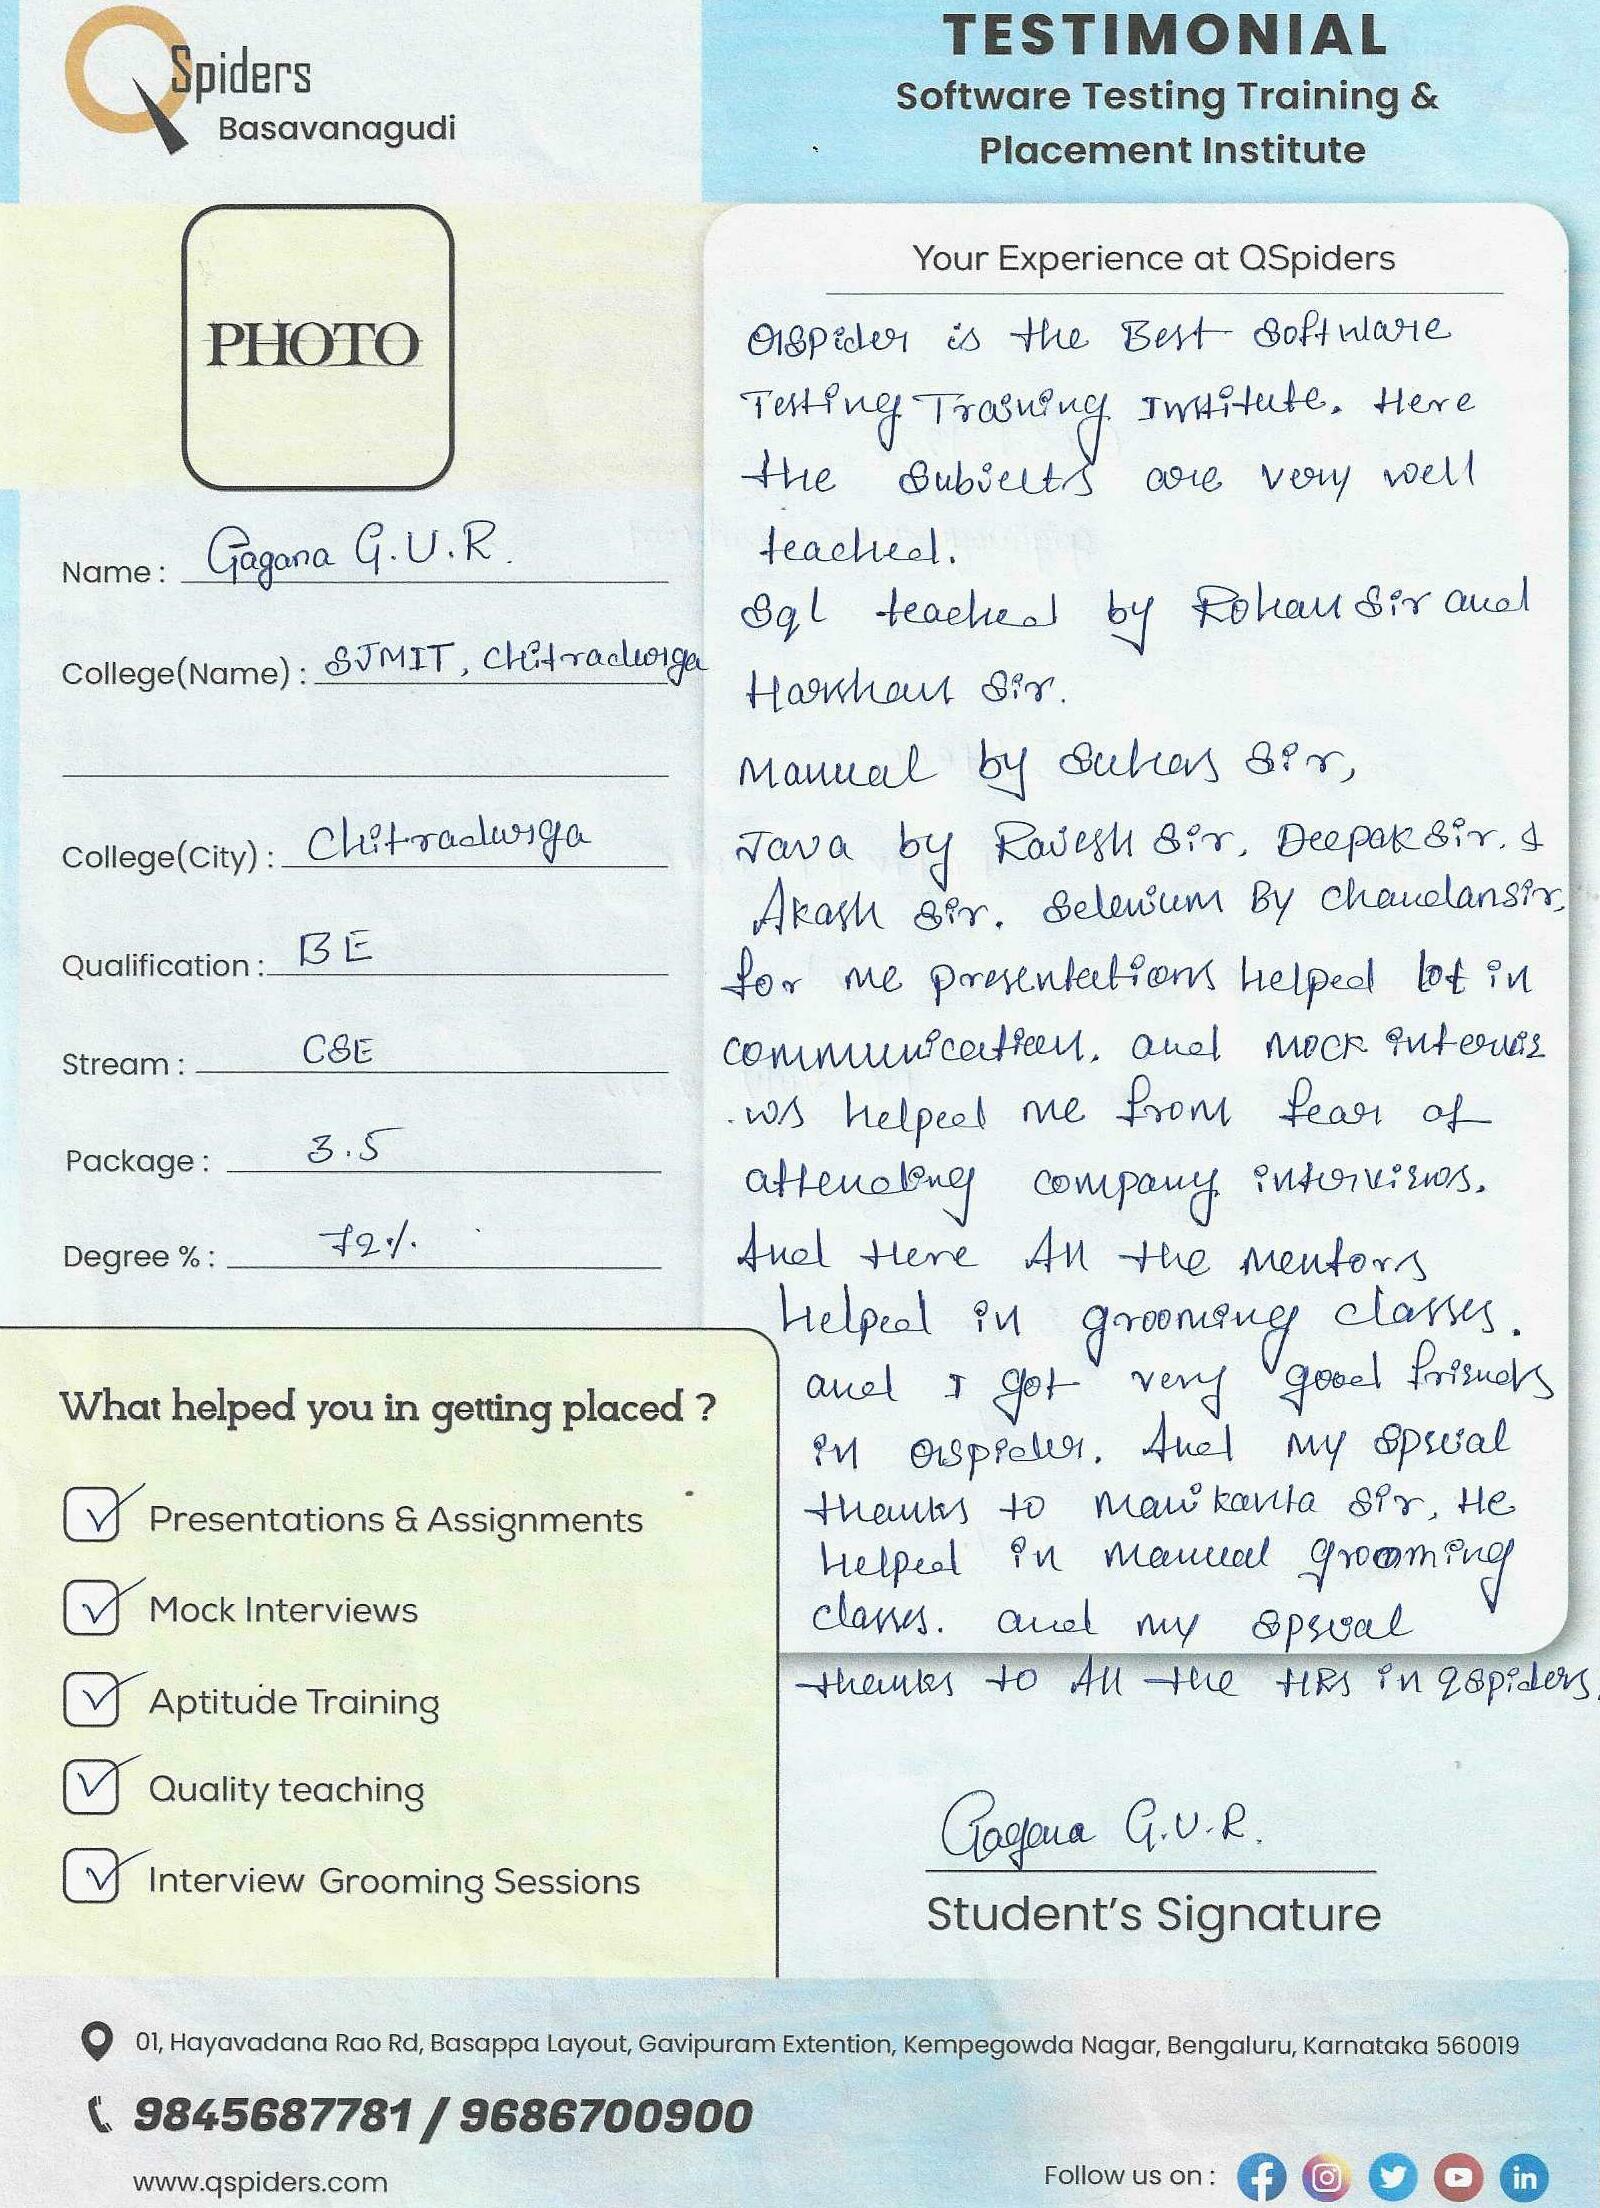 QSpiders
Basavanagudi
TESTIMONIAL
Software Testing Training &
Placement Institute
PHOTO
Name : Gagana G.U.R.
College(Name) : SJMIT, Chitradurga
College(City) : Chitradurga
Qualification : BE
Stream : CSE
Package : 3.5
Degree % : 72%
Your Experience at QSpiders
QSpider is the Best Software
Testing Training Institute. Here
the Subjects are very well
teached.
Sql teached by Rohan Sir and
Harshan Sir.
Manual by Suhas Sir,
Java by Rajesh Sir, Deepak Sir, &
Akash Sir. Selenium By Chandan Sir,
for me presentations helped lot in
communication. and mock intervie
.ws helped me from fear of
attending company interviews.
And Here All the mentors
Helped in grooming classes.
and I got very good friends
in Qspider. And my spscial
thanks to Manikanta Sir, He
Helped in Manual grooming
classes. and my spscial
thanks to All the HRs in QSpiders.
Gagana G.U.R.
Student's Signature
What helped you in getting placed ?
Presentations & Assignments
Mock Interviews
Aptitude Training
Quality teaching
Interview Grooming Sessions
01, Hayavadana Rao Rd, Basappa Layout, Gavipuram Extention, Kempegowda Nagar, Bengaluru, Karnataka 560019
9845687781 / 9686700900
www.qspiders.com
Follow us on :